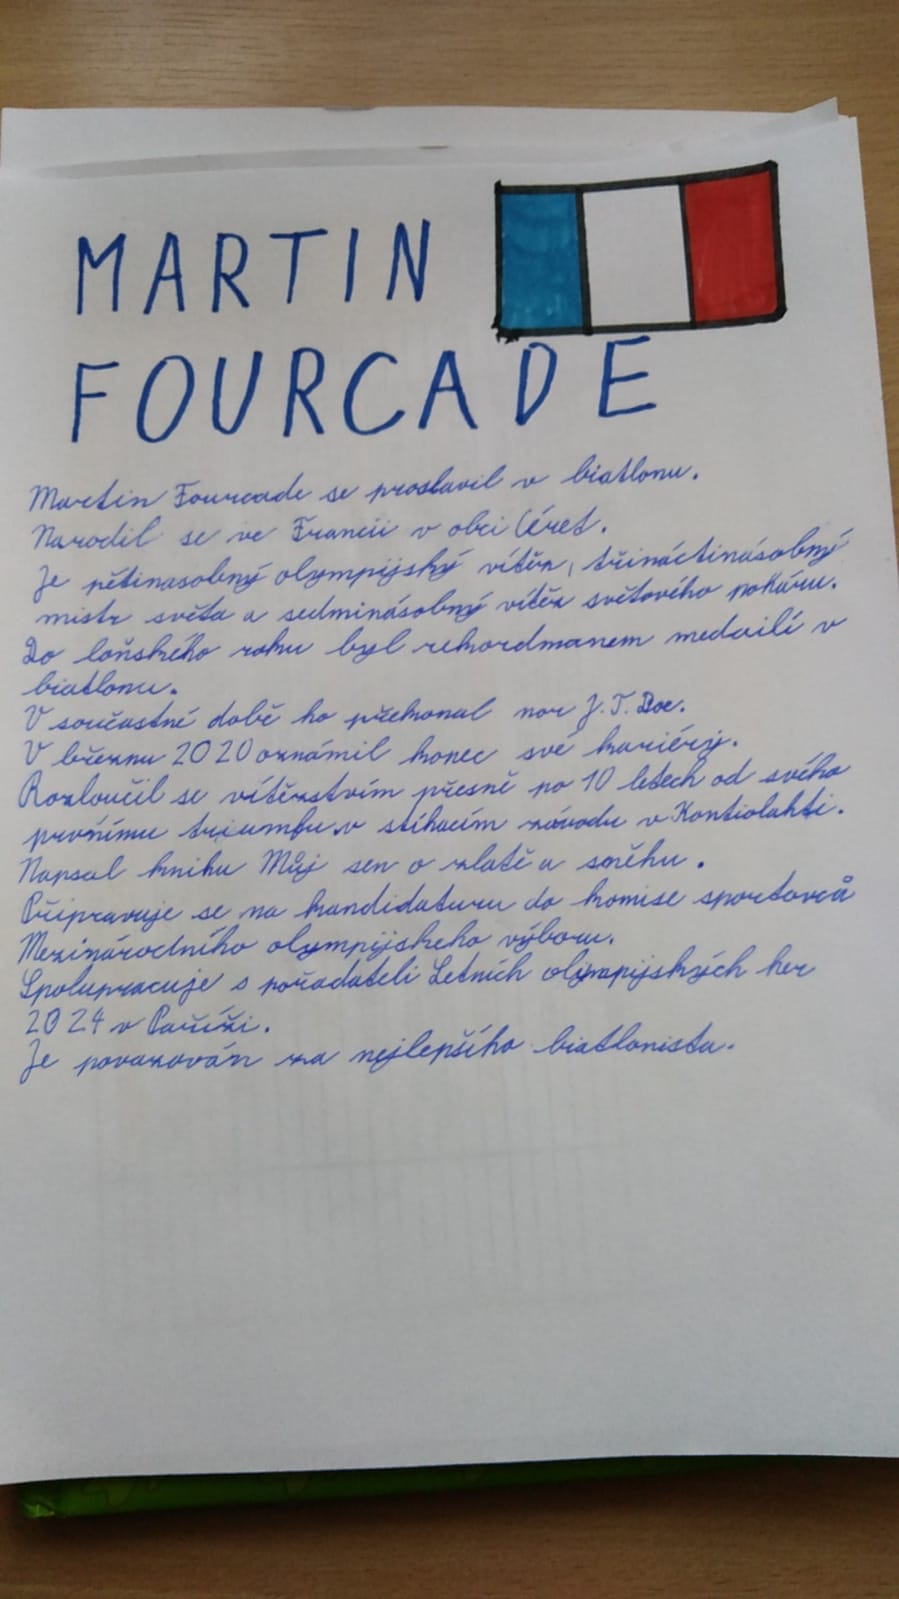 MARTIN
FOURCADE
Martin Fourcade se proslavil v biatlonu.
Narodil se ve Francii v obci Céret.
Je pětinasobný olympijský vítěz, třináctinásobný
mistr světa a sedminásobný vítěz světového poháru.
Do loňského roku byl rekordmanem medailí v
biatlonu.
V součastné době ho překonal nor J. T. Boe.
V březnu 2020 oznámil konec své kariéry.
Rozloučil se vítězstvím přesně po 10 letech od svého
prvnímu triumfu v stíhacím závodu v Kontiolahti.
Napsal knihu Můj sen o zlatě a sněhu.
Připravuje se na kandidaturu do komise sportovců
Mezinárodního olympijskeho výboru.
Spolupracuje s pořadateli Letních olimpijských her
2024 v Paříži.
Je povazován za nejlepšího biatlonistu.